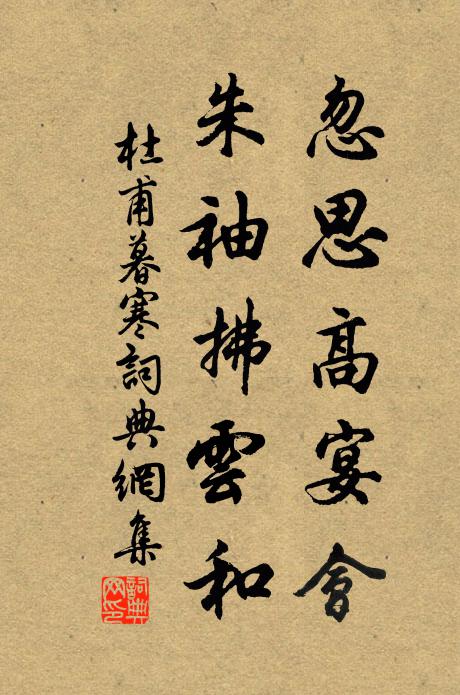 忽思高宴會
朱袖拂雲和
杜甫暮寒詞典網集
詞典網印